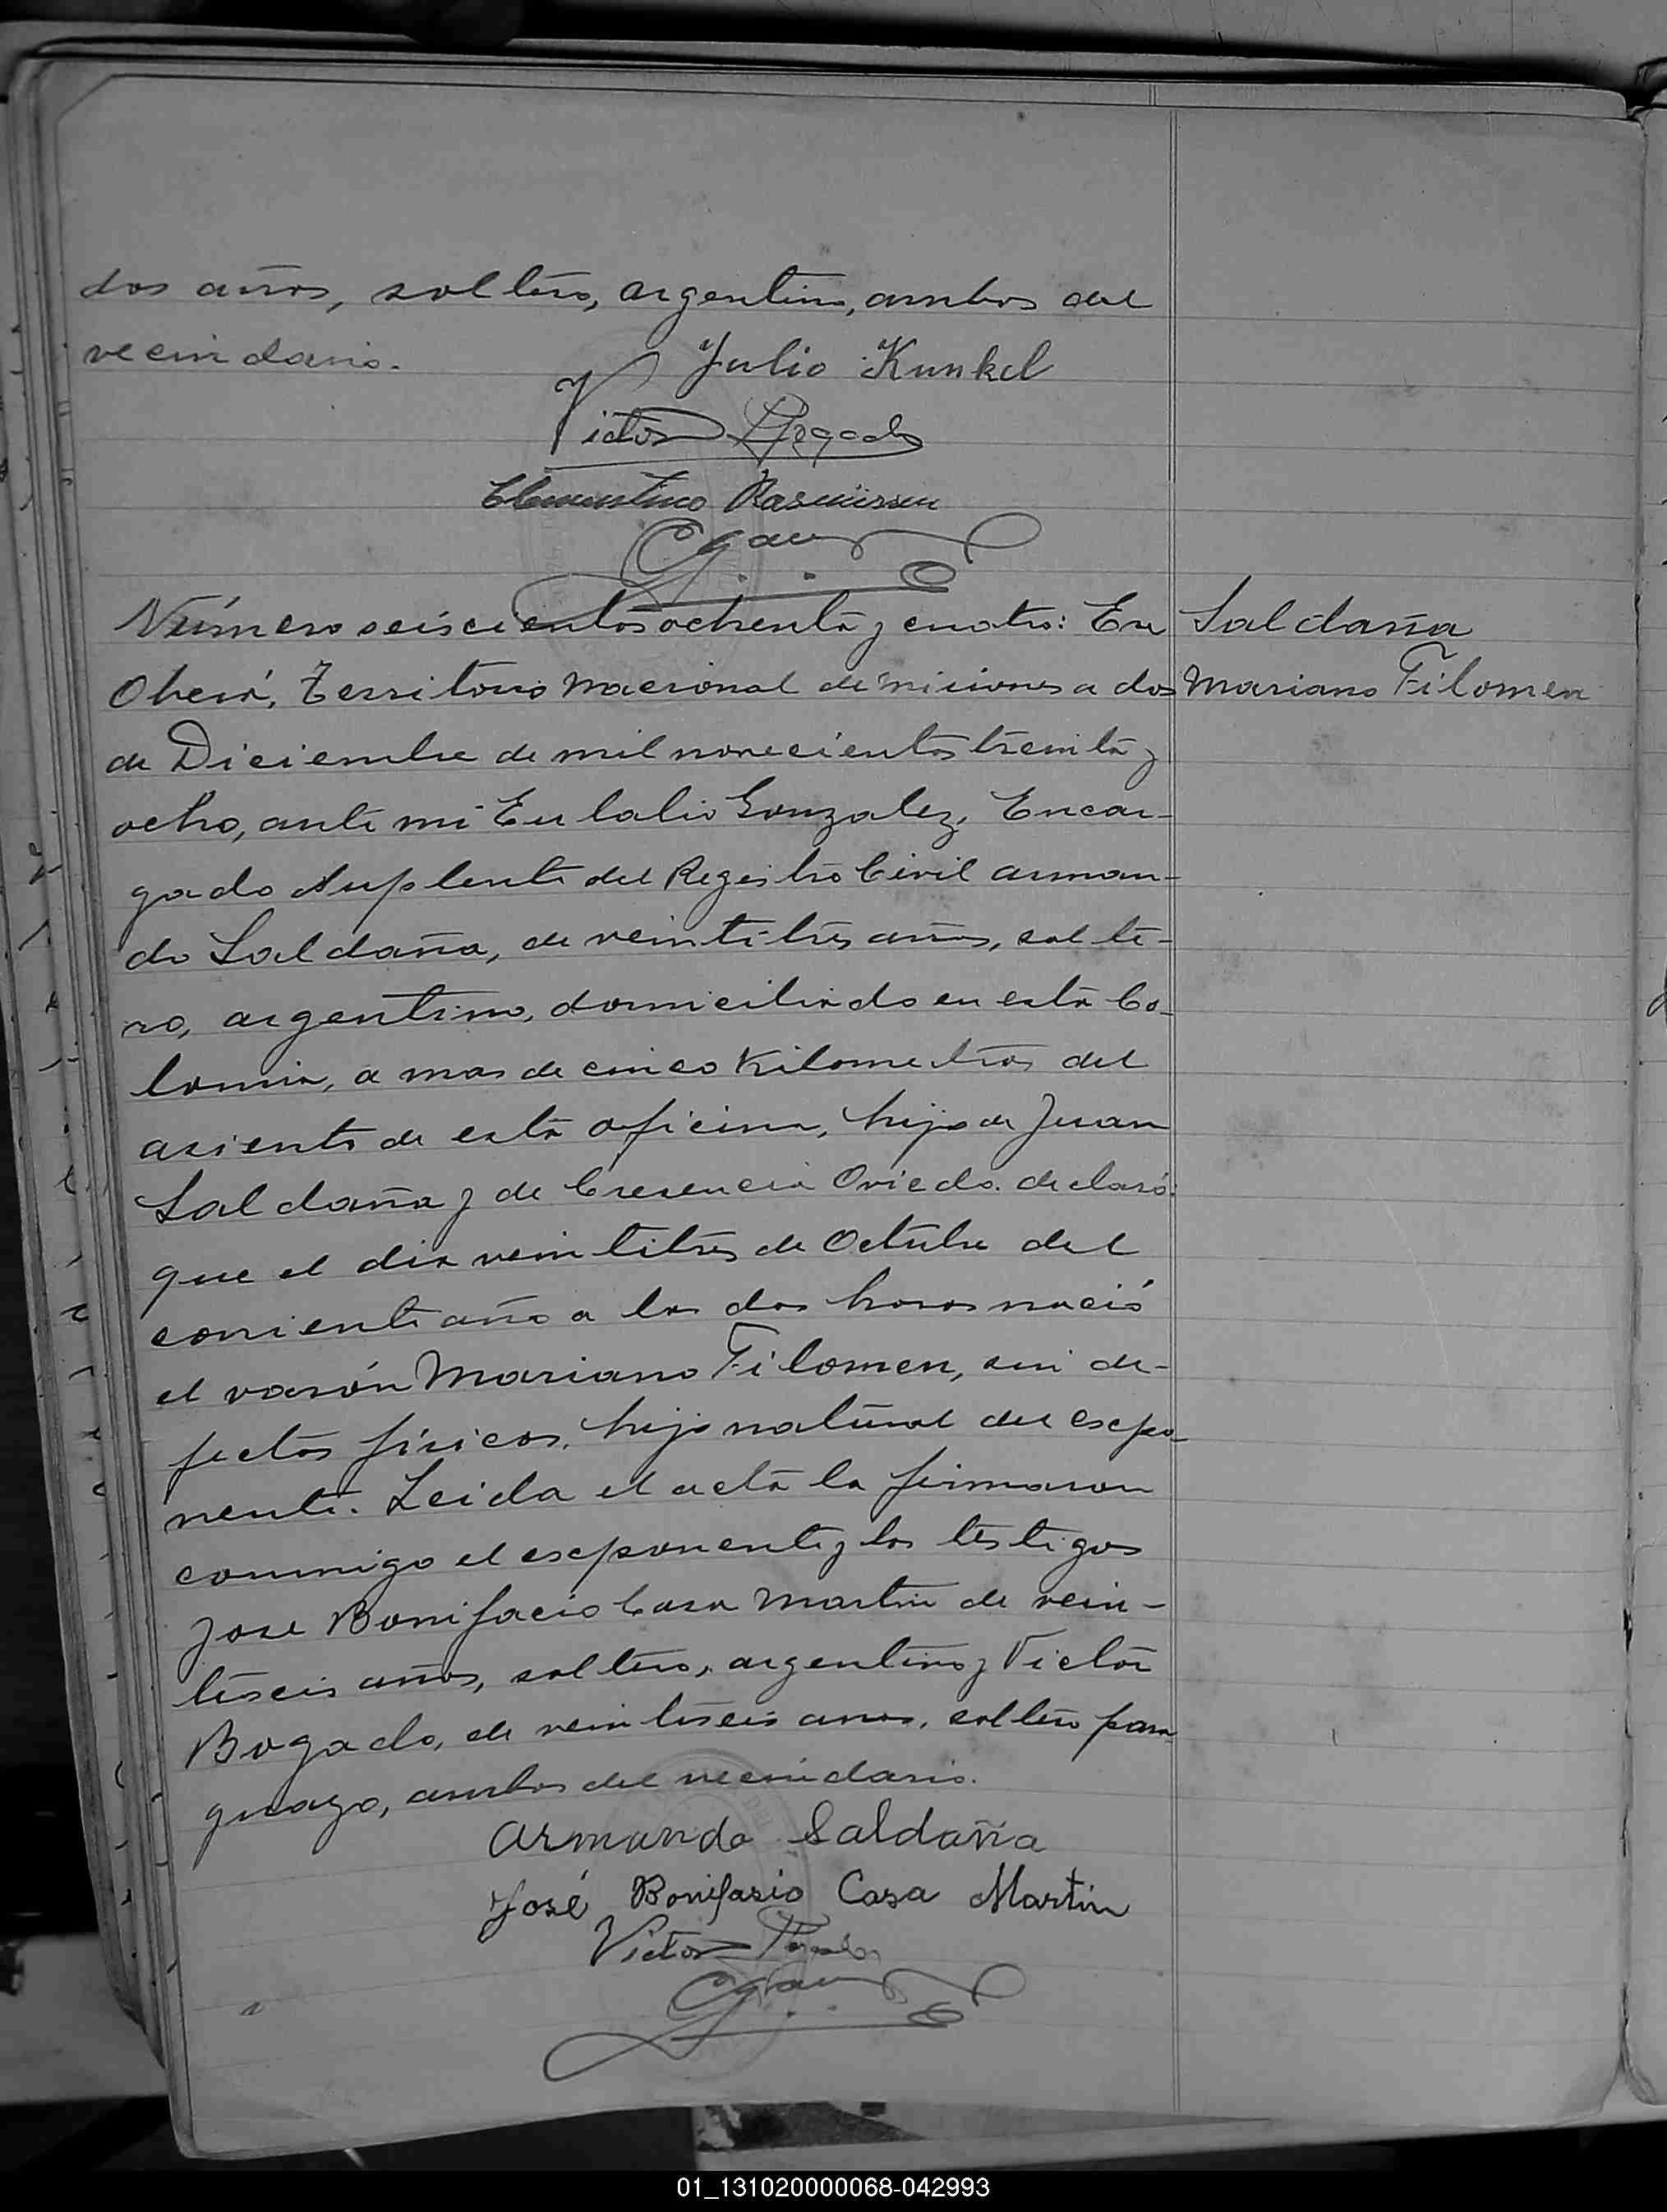 dos años, soltero, argentino, ambos del
vecindario.
Julio Kunkel
Victor Bogado
Clementino Rasmussen
Número seiscientos ochenta y cuatro: En
Saldaña
Oberá, Territorio Nacional de Misiones a dos
Mariano Filomen
de Diciembre de mil novecientos treinta y
ocho, ante mi Eulalio Gonzalez, Encar-
gado Suplente del Registro Civil Arman-
do Saldaña, de veintitrés años, solte-
ro, argentino, domiciliado en esta Co-
lonia, a mas de cinco Kilometros del
asiento de esta oficina, hijo de Juan
Saldaña y de Cresencia Oviedo. declaró:
que el dia veintitrés de Octubre del
corriente año a las dos horas nació
el varón Mariano Filomen, sin de-
fectos físicos, hijo natural del expo-
nente. Leida el acta la firmaron
conmigo el exponente y los testigos
Jose Bonifacio Casa Martin de vein-
tiseis años, soltero, argentino y Victor
Bogado, de veintiseis anos, soltero para
guayo, ambos del vecindario.
Armando Saldaña
José Bonifasio Casa Martin
Victor Bogado
01_131020000068-042993